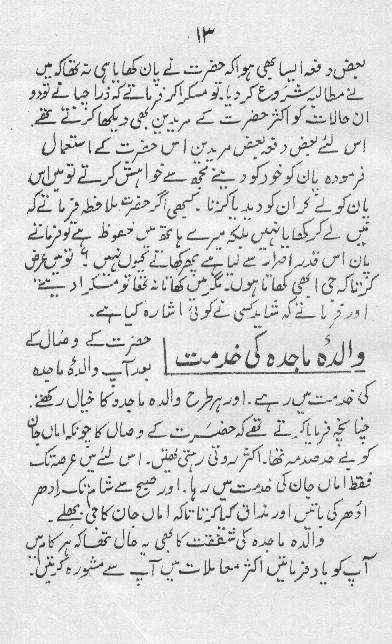 ۱۳
بعض دفعہ ایسا بھی ہوا کہ حضرت نے پان کھایا ہی نہ تھا کہ میں
نے مطالبہ شروع کر دیا۔ تو مسکرا کر فرماتے کہ ذرا چبانے تو دو
ان حالات کو اکثر حضرت کے مریدین بھی دیکھا کرتے تھے۔
اس لئے بعض دفعہ بعض مریدین اس حضرت کے استعمال
فرمودہ پان کو خود کو دینے مجھ سے خواہش کرتے تو میں اس
پان کو لے کر ان کو دیدیا کرتا۔ کبھی اگر حضرت ملاحظہ فرماتے کہ
میں لے کر کھایا نہیں بلکہ میرے ہاتھ میں محفوظ ہے تو فرماتے
پان اس قدر اصرار سے لیا ہے پھر کھاتے کیوں نہیں؟ تو میں عرض
کرتا کہ جی ابھی کھاتا ہوں۔ مگر میں کھاتا نہ تھا تو مسکرا دیتے
اور فرماتے کہ شاید کسی نے کوئی اشارہ کیا ہے۔
والدۂ ماجدہ کی خدمت
حضرت کے وصال کے
بعد آپ والدۂ ماجدہ
کی خدمت میں رہے۔ اور ہر طرح والدہ ماجدہ کا خیال رکھتے۔
چنانچہ فرمایا کرتے تھے کہ حضرت کے وصال کا چونکہ اماں جان
کو بے حد صدمہ تھا۔ اکثر روتی رہتی تھیں۔ اس لئے میں عرصہ تک
فقط اماں جان کی خدمت میں رہا۔ اور صبح سے شام تک اِدھر
اُدھر کی باتیں اور مذاق کیا کرتا تاکہ اماں جان کا جی بہلے۔
والدہ ماجدہ کی شفقت کا بھی یہ حال تھا کہ ہر کام میں
آپ کو یاد فرماتیں اکثر معاملات میں آپ سے مشورہ کرتیں۔